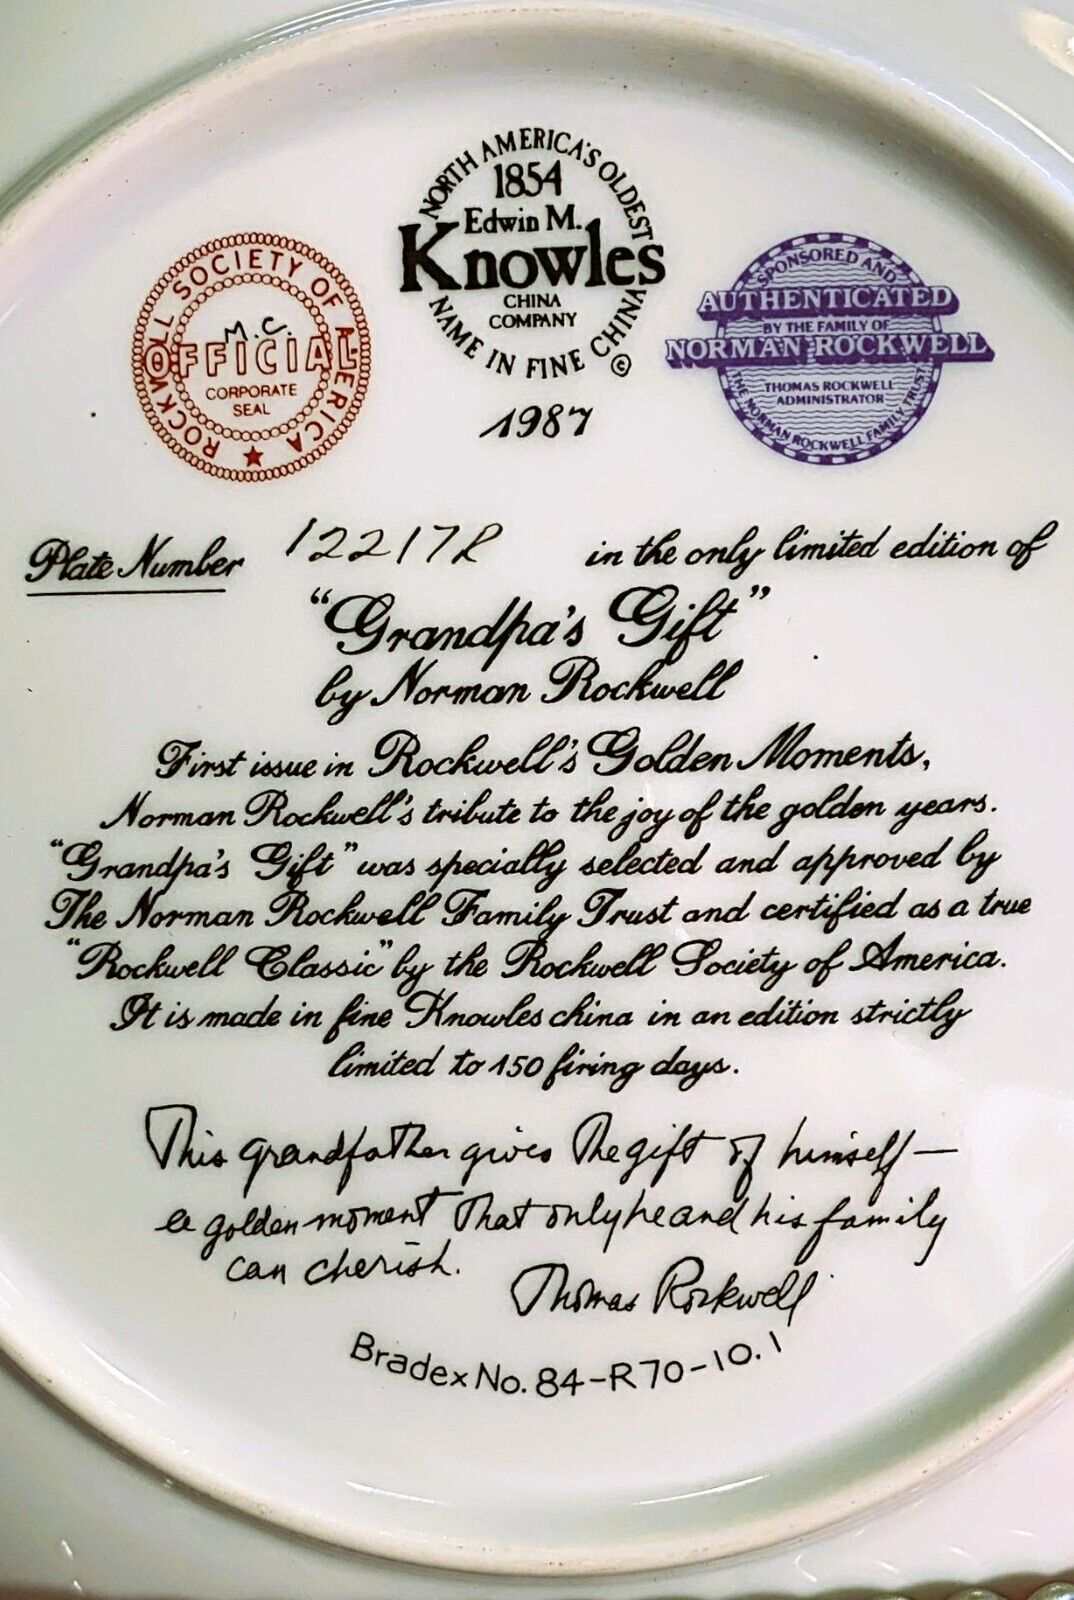 NORTH AMERICA'S OLDEST
1854
Edwin M.
Knowles
CHINA
COMPANY
NAME IN FINE CHINA
©
1987
ROCKWELL SOCIETY OF AMERICA
M.C.
OFFICIAL
CORPORATE
SEAL
SPONSORED AND
AUTHENTICATED
BY THE FAMILY OF
NORMAN ROCKWELL
THOMAS ROCKWELL
ADMINISTRATOR
THE NORMAN ROCKWELL FAMILY TRUST
Plate Number 12217R in the only limited edition of
"Grandpa's Gift"
by Norman Rockwell
First issue in Rockwell's Golden Moments,
Norman Rockwell's tribute to the joy of the golden years.
"Grandpa's Gift" was specially selected and approved by
The Norman Rockwell Family Trust and certified as a true
"Rockwell Classic" by the Rockwell Society of America.
It is made in fine Knowles china in an edition strictly
limited to 150 firing days.
This grandfather gives the gift of himself—
a golden moment that only he and his family
can cherish.
Thomas Rockwell
Bradex No. 84-R70-10.1